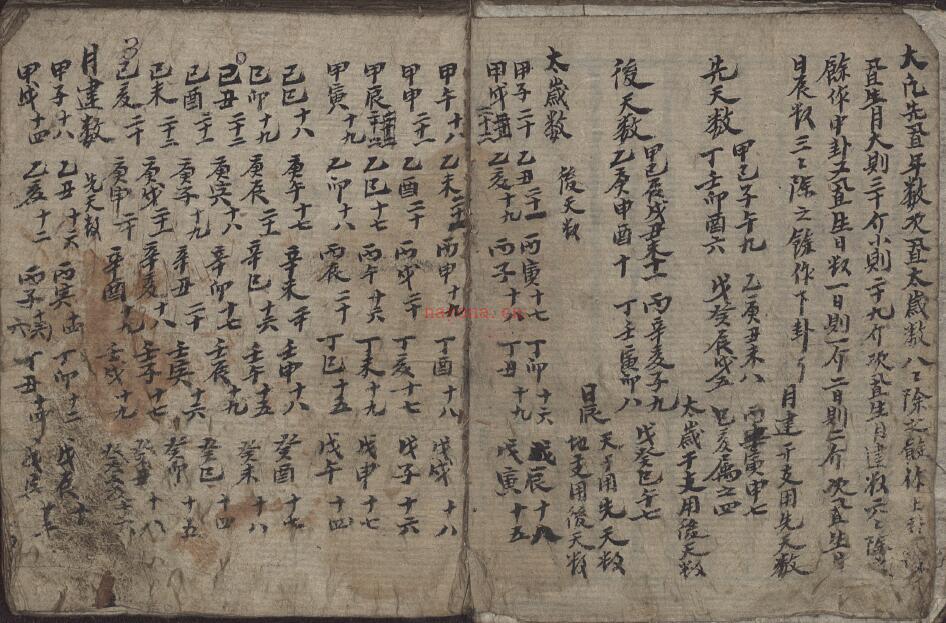 大凡先置年数次置太歲数八〻除之餘作上卦
置生月大則三十介小則二十九介次置生月建数六〻除
餘作中卦又置生日数一日則一介二日則二介次置生日
日辰数三〻除之餘作下卦 月建干支用先天数
先天数 甲己子午九 乙庚丑未八 丙辛寅申七
丁壬卯酉六 戊癸辰戌五 巳亥屬之四
太歲干支用後天数
後天数 甲己辰戌丑未十一 丙辛亥子九 戊癸巳午七
乙庚申酉十 丁壬寅卯八
日辰 天干用先天数
地支用後天数
太歲数 後天数
甲子二十 乙丑二十一 丙寅十七 丁卯十六 戊辰十八
甲戌二十二 乙亥十九 丙子十八 丁丑十九 戊寅十五
甲午十八 乙未二十一 丙申十九 丁酉十八 戊戌十八
甲申二十一 乙酉二十 丙戌二十 丁亥十七 戊子十六
甲辰二十二 乙巳十七 丙午十六 丁未十九 戊申十七
甲寅十九 乙卯十八 丙辰二十 丁巳十五 戊午十四
己巳十八 庚午十七 辛未二十 壬申十八 癸酉十七
己卯十九 庚辰二十一 辛巳十六 壬午十五 癸未十八
己丑二十二 庚寅十八 辛卯十七 壬辰十九 癸巳十四
己酉二十一 庚子十九 辛丑二十 壬寅十六 癸卯十五
己未二十二 庚戌二十一 辛亥十八 壬子十七 癸丑十八
己亥二十 庚申二十 辛酉十九 壬戌十九 癸亥十六
月建数 先天数
甲子十八 乙丑十六 丙寅十四 丁卯十二 戊辰十
甲戌十四 乙亥十二 丙子十六 丁丑十四 戊寅十二